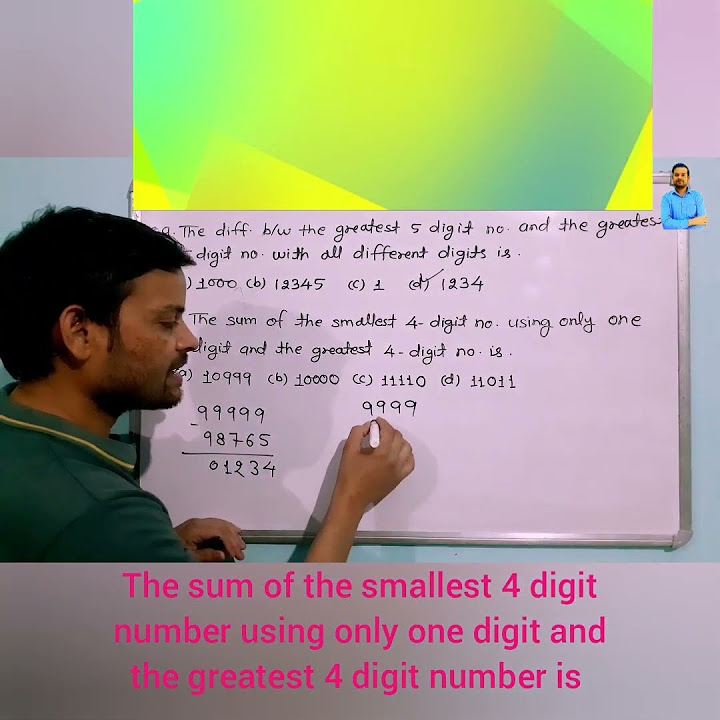 9. The diff. b/w the greatest 5 digit no. and the greates
digit no. with all different digits is.
) 1000 (b) 12345 (c) 1 (d) 1234
The sum of the smallest 4-digit no. using only one
digit and the greatest 4-digit no. is.
a) 10999 (b) 10000 (c) 11110 (d) 11011
99999
9999
- 98765
01234
The sum of the smallest 4 digit
number using only one digit and
the greatest 4 digit number is